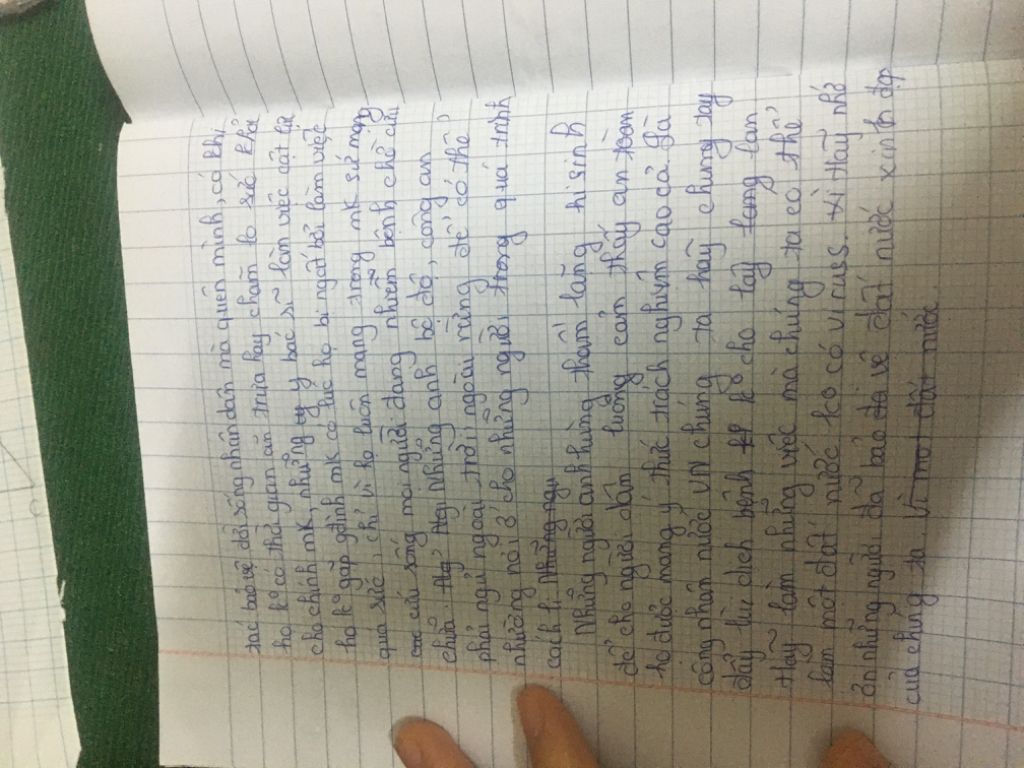 tác bảo vệ đời sống nhân dân mà quên mình, có khi
họ ko có thời gian ăn trưa hay chăm lo sức khỏe
cho chính mk, những y bác sĩ làm việc cật lực
họ ko gặp gđình mk có lúc họ bị ngất bởi làm việc
quá sức, chỉ vì họ luôn mang trong mk sứ mạng
cao cứu sống mọi người đang nhiễm bệnh chờ cứu
chữa. Những anh bộ đội, công an
phải ngủ ngoài trời, ngoài rừng để có thể
nhường nơi ở cho những người trong quá trình
cách li. Những ngu
Những người anh hùng thầm lặng hi sinh
để cho người dân luông cảm thấy an toàn
họ được mang ý thức trách nghiệm cao cả là
công nhân nước VN chúng ta hãy chung tay
đẩy lùi dịch bệnh ko cho lây lan
Hãy làm những việc mà chúng ta có thể
làm một đất nước ko có viruss. Hãy nhớ
ơn những người đã bảo vệ đất nước xinh đẹp
của chúng ta. Vì một đất nước.